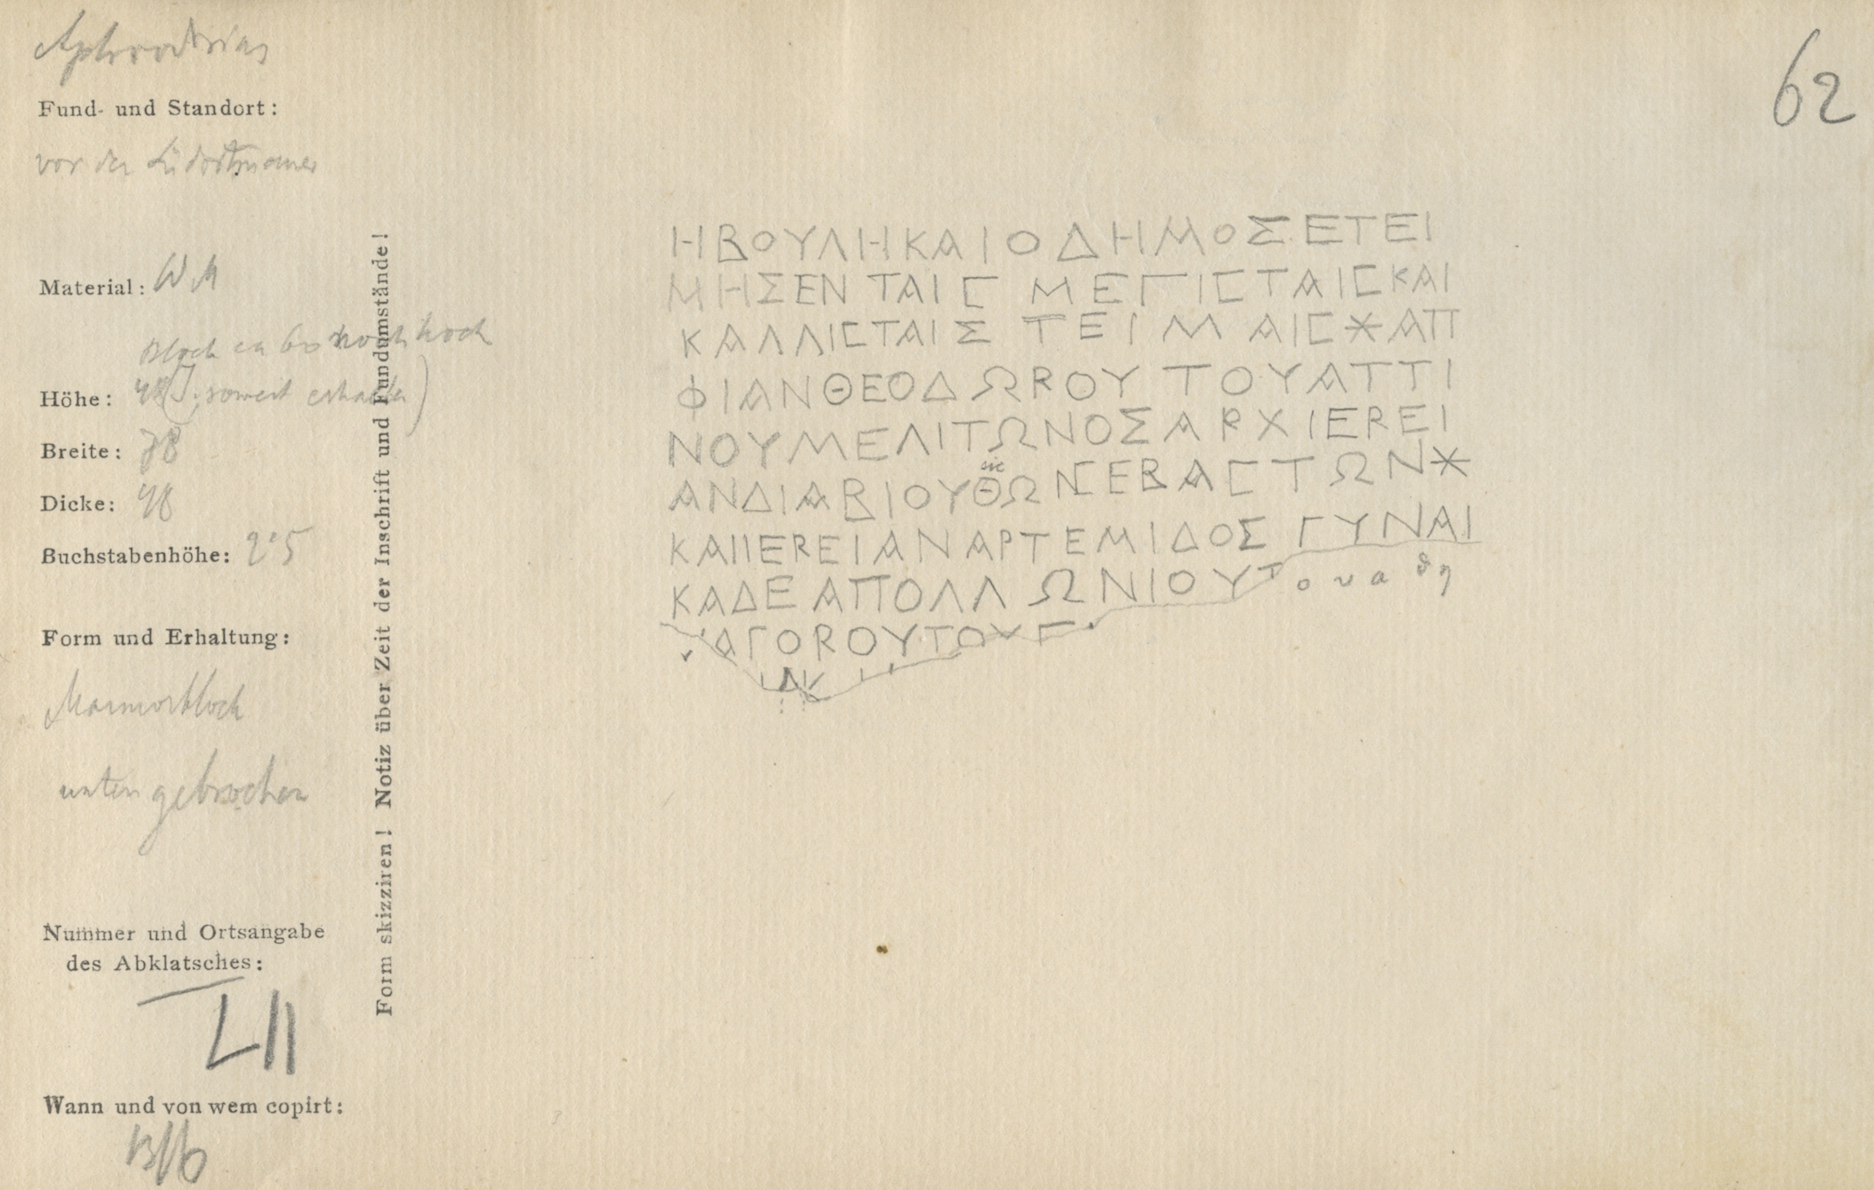 Aphrodisias
62
Fund- und Standort:
vor der Südostmauer
Material: W M
Block ca 60 hoch
Höhe: 48 (J. soweit erhalten)
Breite: 78
Dicke: 48
Buchstabenhöhe: 2·5
Form und Erhaltung:
Marmorblock
unten gebrochen
Nummer und Ortsangabe
des Abklatsches:
LII
Wann und von wem copirt:
13/6
Form skizziren! Notiz über Zeit der Inschrift und Fundumstände!
ΗΒΟΥΛΗΚΑΙΟΔΗΜΟΣΕΤΕΙ
ΜΗΣΕΝ ΤΑΙϹ ΜΕΓΙϹΤΑΙϹΚΑΙ
ΚΑΛΛΙϹΤΑΙΣ ΤΕΙΜΑΙϹ⚹ΑΠ
ΦΙΑΝΘΕΟΔΩΡΟΥ ΤΟΥΑΤΤΙ
ΝΟΥΜΕΛΙΤΩΝΟΣΑΡΧΙΕΡΕΙ
sic
ΑΝΔΙΑΒΙΟΥΘΩΝϹΕΒΑϹΤΩΝ⚹
ΚΑΙΙΕΡΕΙΑΝΑΡΤΕΜΙΔΟΣ ΓΥΝΑΙ
ΚΑΔΕΑΠΟΛΛΩΝΙΟΥΤουαθη
ΑΓΟΡΟΥΤΟΥΓ